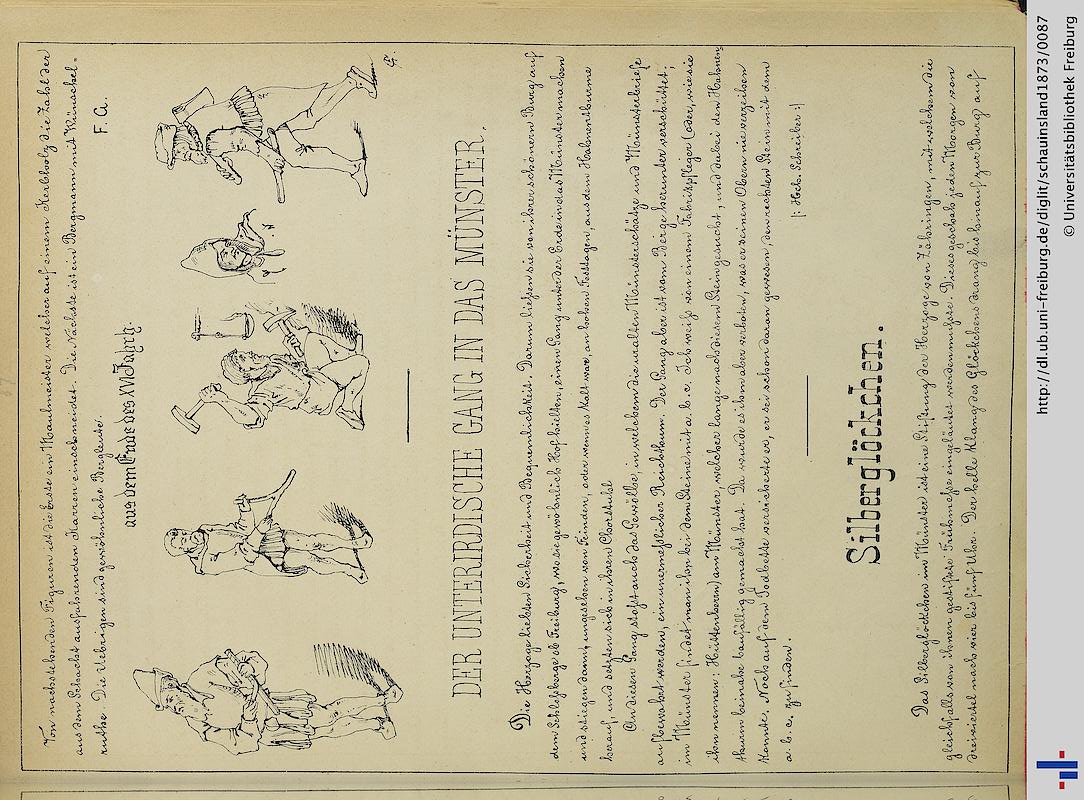 Von nachstehenden Figuren ist die Erste ein Maulmeister welcher auf einem Kerbholz die Zahl der
aus dem Schacht ausfahrenden Karren einschneidet. Die Nächste ist ein Bergmann mit Wünschel-
ruthe. Die Uebrigen sind gewöhnliche Bergleute.
F. G.
aus dem Ende des XVI Jahrh.
G.
DER UNTERIRDISCHE GANG IN DAS MÜNSTER.
Die Herzoge liebten Sicherheit und Bequemlichkeit. Darum ließen sie von ihrer schönen Burg auf
dem Schloßberge ob Freiburg, wo sie gewöhnlich Hof hielten, einen Gang unter der Erde in das Münster machen
und stiegen dann, ungesehen von Feinden, oder wenn es kalt war, an hohen Festtagen, aus dem Hahnenthurme
herauf, und setzten sich in ihren Chorstuhl.
An diesen Gang stoßt auch das Gewölbe, in welchem die uralten Münsterschätze und Münsterbriefe
aufbewahrt werden, ein unermeßlicher Reichthum. Der Gang aber ist vom Berge herunter verschüttet;
im Münster findet man ihn bei dem Steine mit a. b. c. Ich weiß von einem Fabrikpfleger (oder, wie sie
ihn nennen: Hüttenherrn) am Münster, welcher lange nach diesem Stein gesucht, und dabei den Hahnen-
thurm beinahe baufällig gemacht hat. Da wurde es ihm aber verboten, was er seinen Obern nie verzeihen
konnte. Noch auf dem Todbette versicherte er, er sei schon daran gewesen, den rechten Stein mit dem
a. b. c. zu finden.
|: Heb. Schreiber :|
Silberglöckchen.
Das Silberglöckchen im Münster ist eine Stiftung der Herzoge von Zähringen, mit welchem die
gleichfalls von ihnen gestiftete Frühmesse eingeläutet werden mußte. Dieses geschah jeden Morgen von
dreiviertel nach vier bis fünf Uhr. Der helle Klang des Glöckchens drang bis hinauf zur Burg auf
http://dl.ub.uni-freiburg.de/diglit/schauinsland1873/0087
© Universitätsbibliothek Freiburg